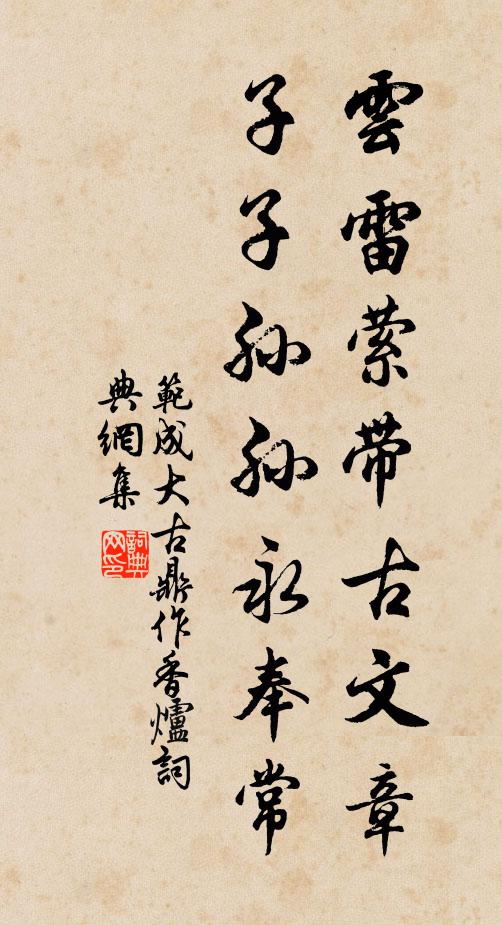 雲雷縈带古文章
子子孫孫永奉常
範成大古鼎作香爐詞
典網集
詞典网印